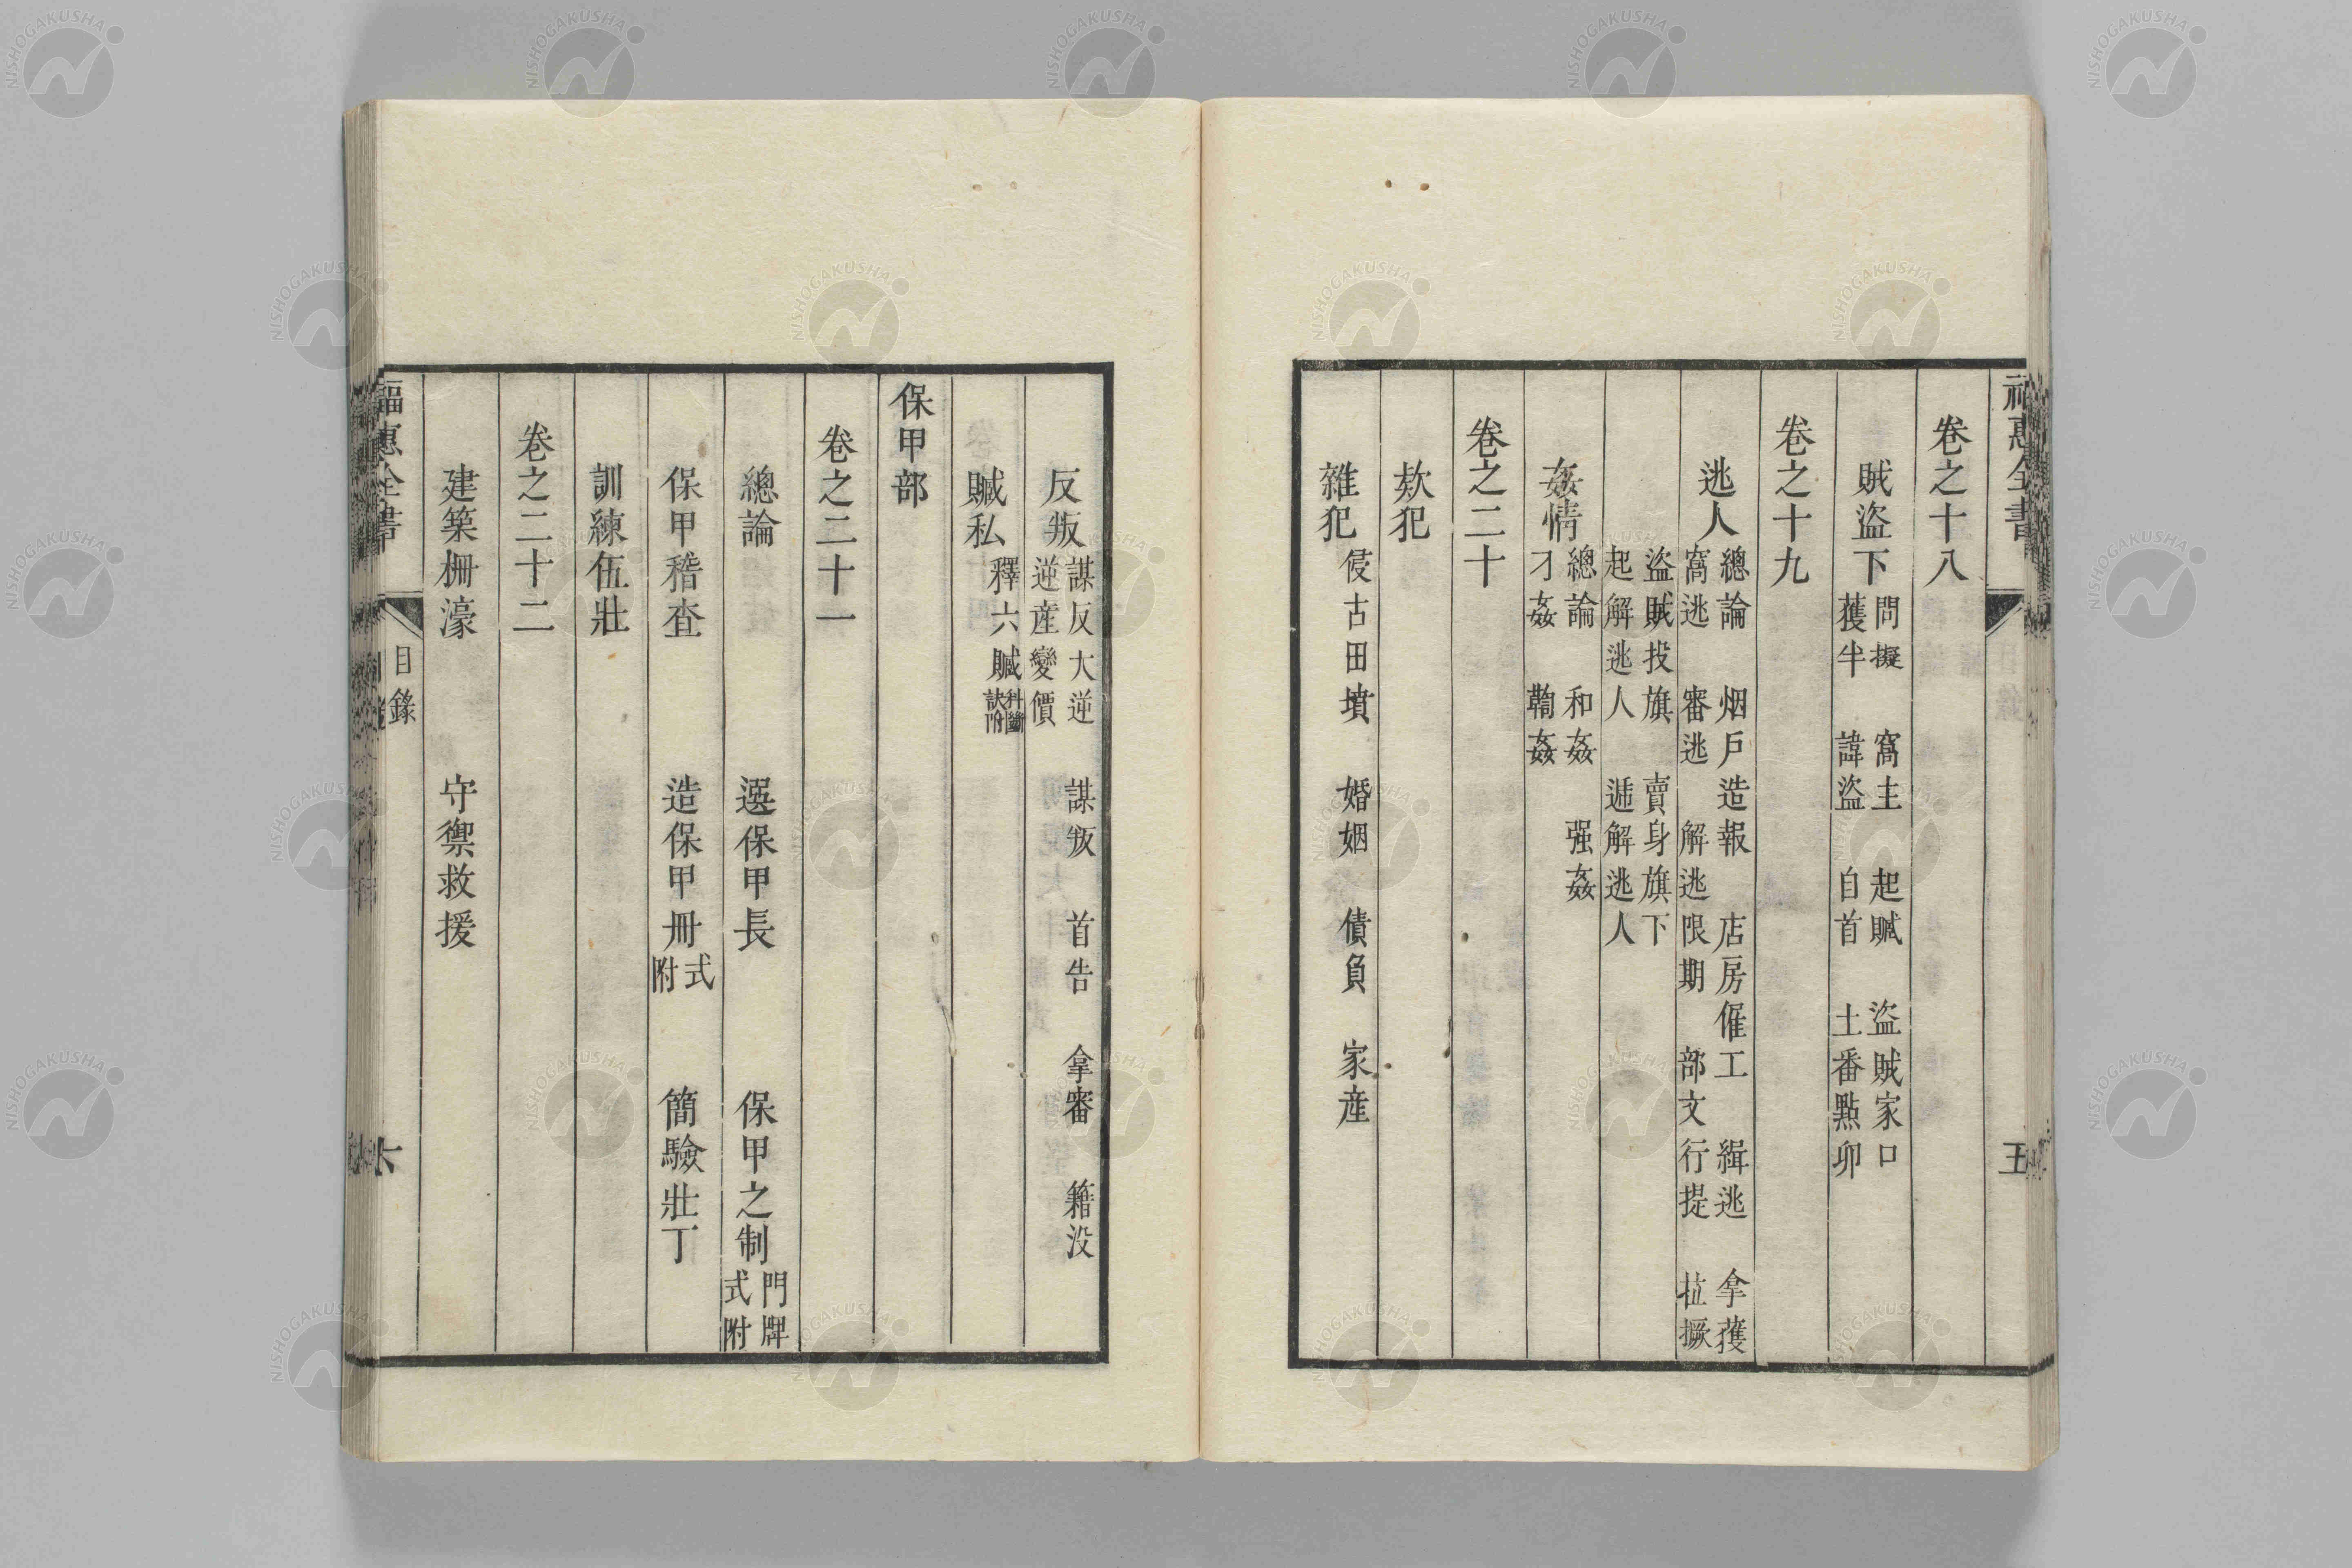 福惠全書
五
卷之十八
賊盜下
問擬　窩主　起贓　盜賊家口
獲半　諱盜　自首　土番點卯
卷之十九
逃人
總論　烟戶造報　店房僱工　緝逃　拿獲
窩逃　審逃　解逃限期　部文行提　拉撅
盜賊投旗　賣身旗下
起解逃人　遞解逃人
姦情
總論　和姦　强姦
刁姦　鞫姦
卷之二十
欵犯
雜犯　侵古田墳　婚姻　債負　家産
反叛
謀反大逆　謀叛　首告　拿審　籍没
逆産變價
贓私　釋六贓
保甲部
卷之二十一
總論　選保甲長　保甲之制
門牌
式附
保甲稽查　造保甲冊　簡驗壯丁
式
附
訓練伍壯
卷之二十二
建築柵濠　守禦救援
福惠全書
目錄
六
NISHOGAKUSHA